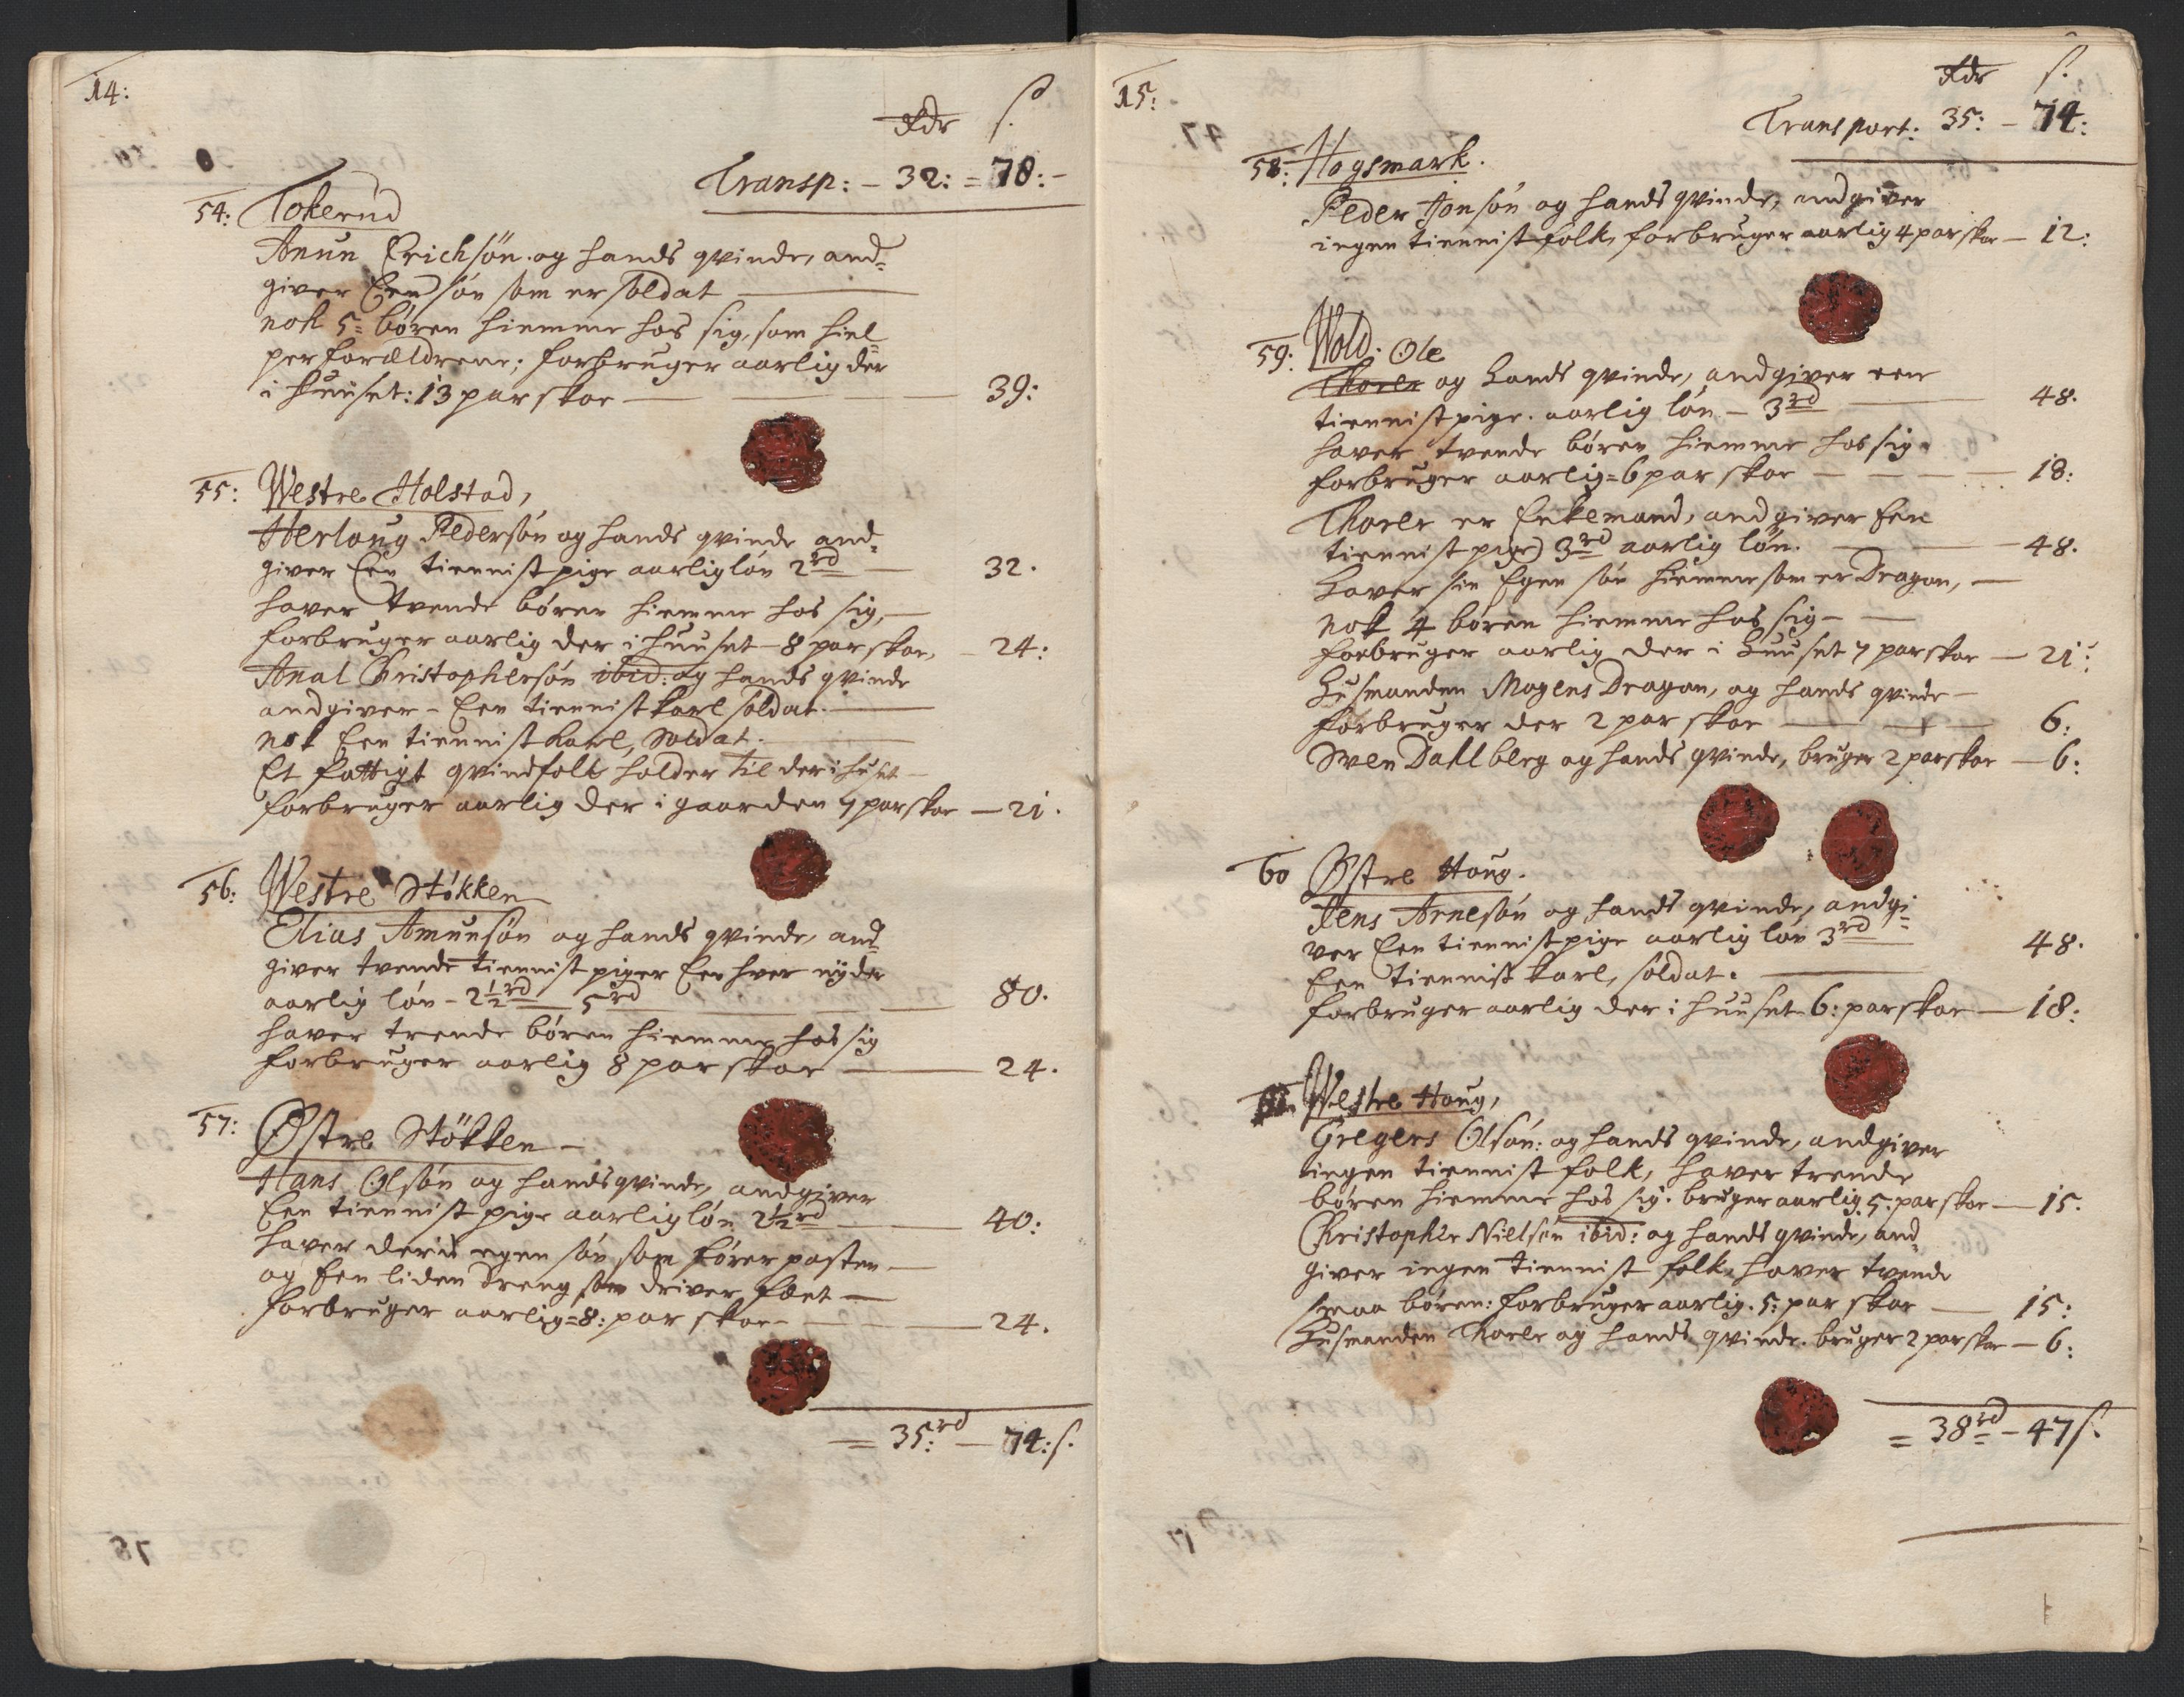 14:
Rdr s.
Transp: – 32: = 78: –
54: Tokerud
Amun Erichsön og hands qvinde, and=
giver Een søn som er soldat
nok 5: børen hiemme hos sig, som hiel=
per forældrene; forbruger aarlig der
i huuset: 13 par skoe — 39:
55: Westre Holstad,
Herloug Pedersøn og hands qvinde and=
giver Een tiennist pige aarlig løn 2 rd — 32.
haver tvende børen hiemme hos sig,
forbruger aarlig der i huuset – 8 par skoe, – 24:
Christophersøn ibid: og hands qvinde
andgiver – Een tiennist karl soldat.
nok Een tiennist karl, soldat.
Et fattigt qvindfolk holder til der i huset –
forbruger aarlig der i gaarden 7 par skoe — 21.
56: Westre Støkken
Elias Amunsøn og hands qvinde, and=
giver tvende tiennist piger Een hver nÿder
aarlig løn – 2½ rd 5 rd — 80.
haver trende børen hiemme hos sig
forbruger aarlig 8 par skoe — 24.
57: Østre Støkken –
Hans Olsøn og hands qvinde, andgiver
Een tiennist pige aarlig løn 2½ rd — 40:
haver deris egen søn som fører posten —
og Een liden dreng som driver fæet —
forbruger aarlig = 8: par skoe – — 24.
= 35: rd — 74: s.
15:
Rdr s.
Transport: 35: – 74:
58: Hogsmark.
Peder Jonsøn og hands qvinde, andgiver
ingen tiennist folk, forbruger aarlig 4 par skoe — 12:
59: Wold. Ole
Thorer og hands qvinde, andgiver een
tiennist pige. aarlig løn – 3 rd — 48.
haver tvende børen hiemme hos sig.
forbruger aarlig = 6 par skoe — 18:
Thorer er Enkemand, andgiver Een
tiennist pige 3 rd aarlig løn. — 48.
haver sin Egen søn hiemme som er Dragon, —
nok 4 børen hiemme hos sig –
forbruger aarlig der i huuset 7 par skoe — 21:
Husmanden Mogens Dragon, og hands qvinde –
forbruger der 2 par skoe — 6:
Swen Dahlberg og hands qvinde, bruger 2 par skoe — 6:
60 Østre Houg.
Jens Arnesøn og hands qvinde, andgi=
ver Een tiennist pige aarlig løn 3 rd — 48.
Een tiennist karl, soldat.
forbruger aarlig der i huuset 6: par skoe — 18:
Westre Houg,
Gregers Olsøn: og hands qvinde, andgiver
ingen tiennist folk, haver trende
børen hiemme hos sig. bruger aarlig 5. par skoe — 15.
Christopher Nielsøn ibid: og hands qvinde, and=
giver ingen tiennist folk, haver tvende
smaa børen: forbruger aarlig. 5: par skoe — 15:
Husmanden Thorer og hands qvinde. bruger 2 par skoe — 6:
= 38 rd – 47 s.